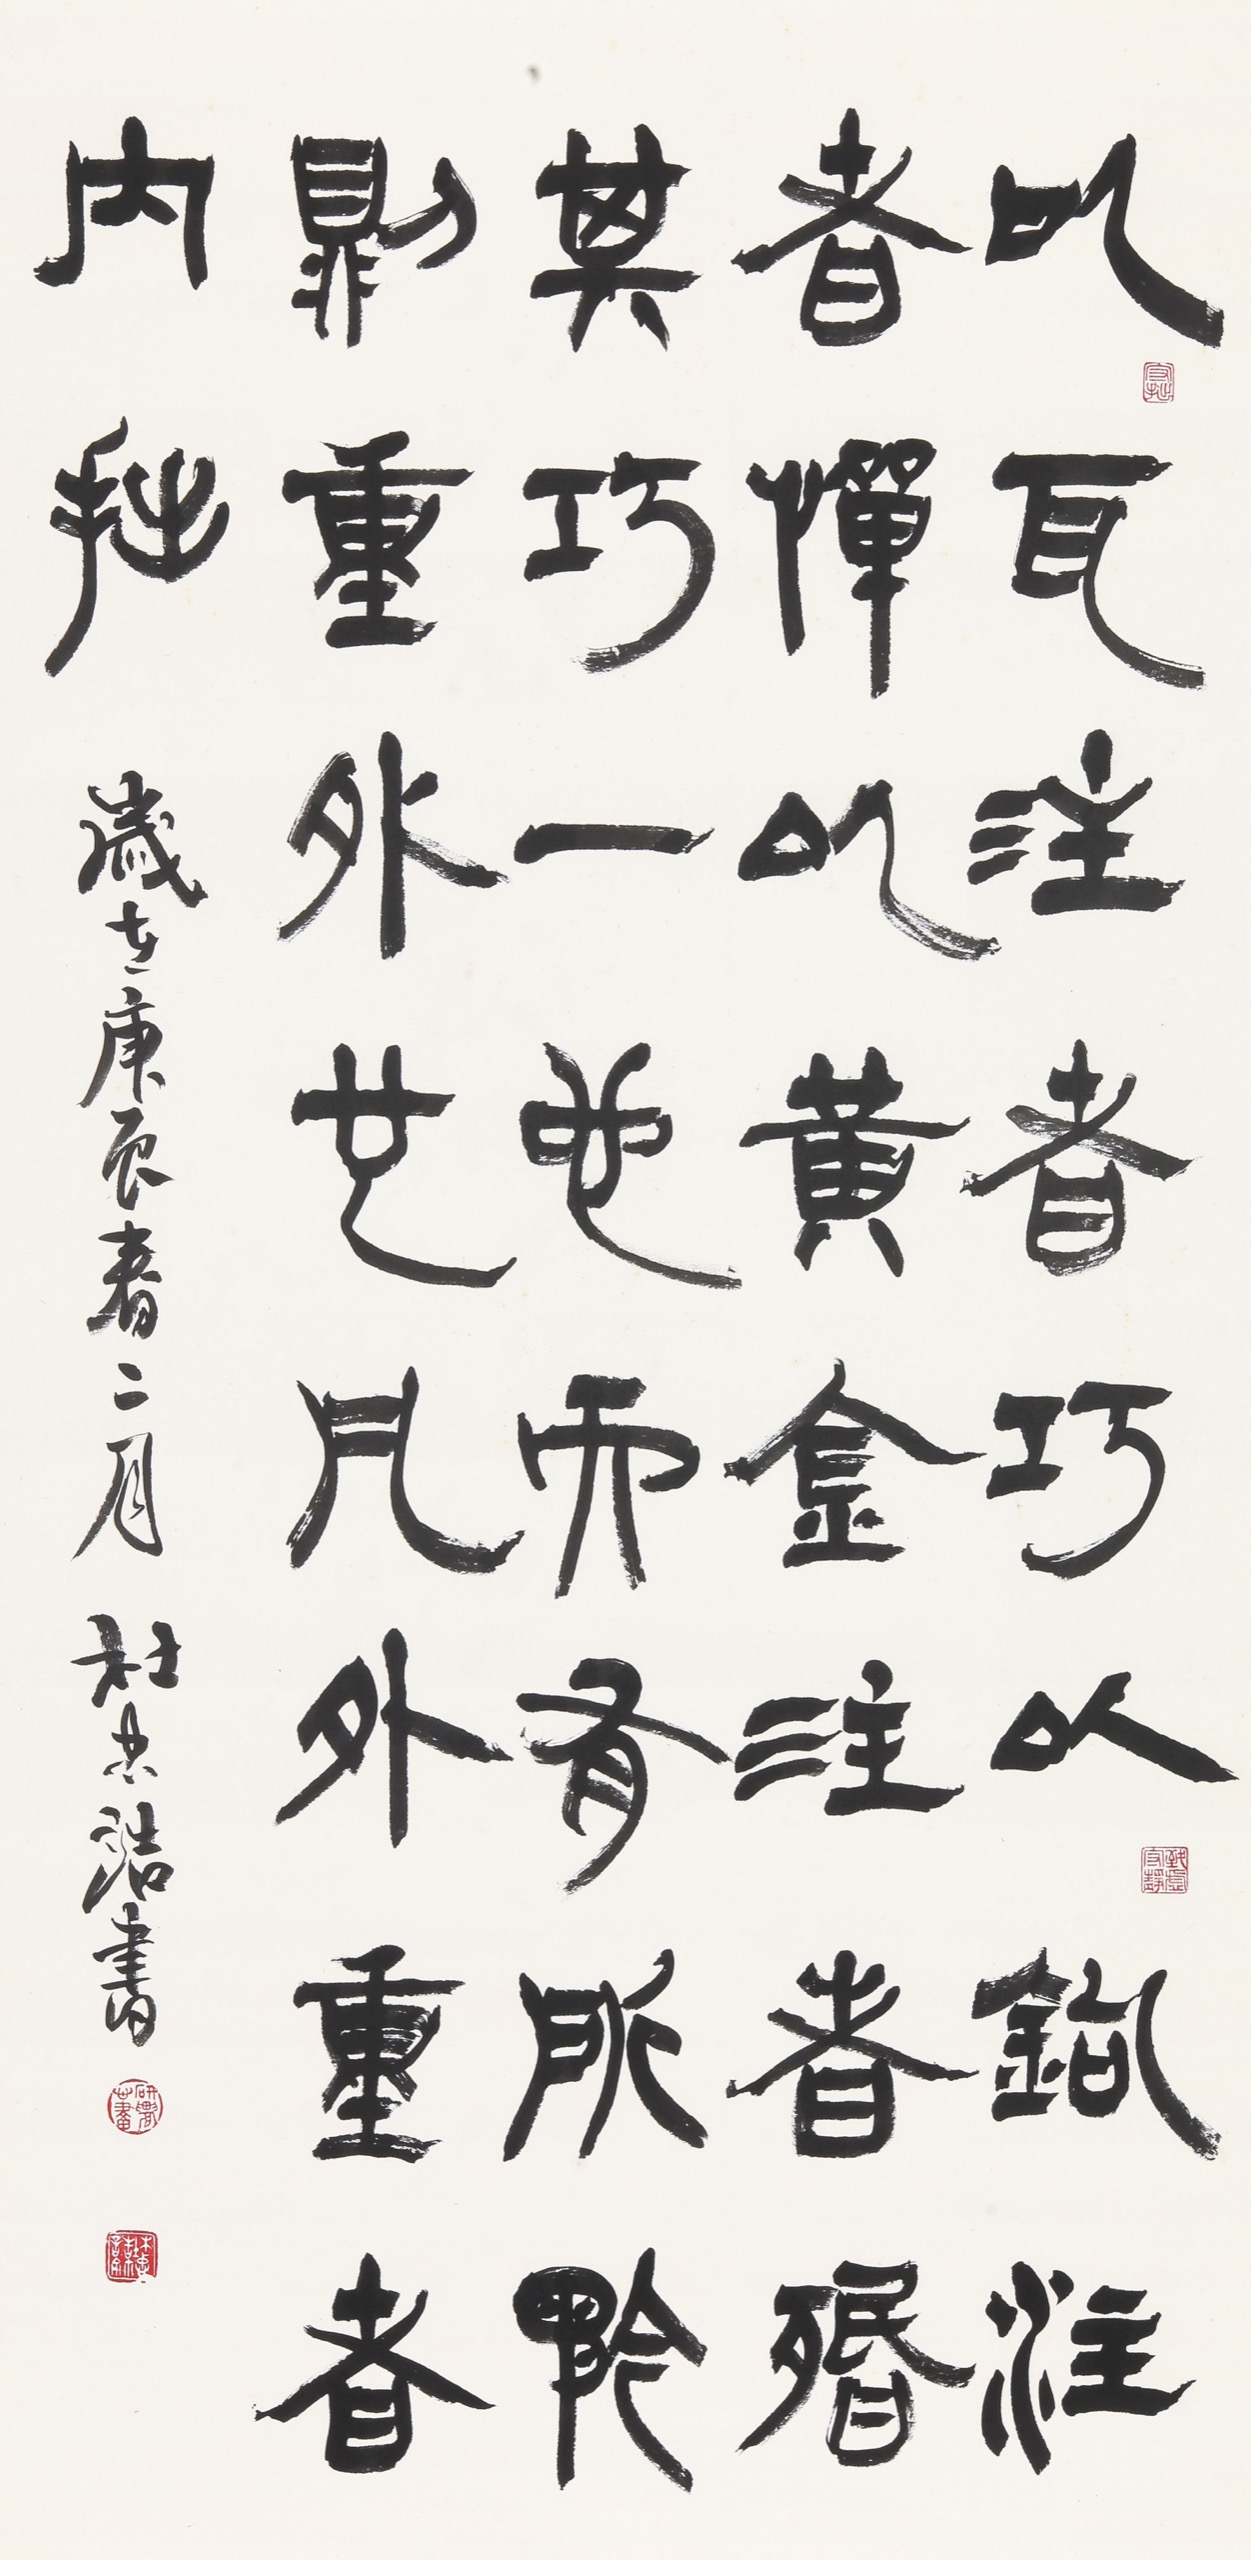 以瓦注者巧以鉤注
者憚以黃金注者殙
其巧一也而有所矜
則重外也凡外重者
內拙
歲在庚辰春二月 杜忠誥書
守拙
致虛守靜